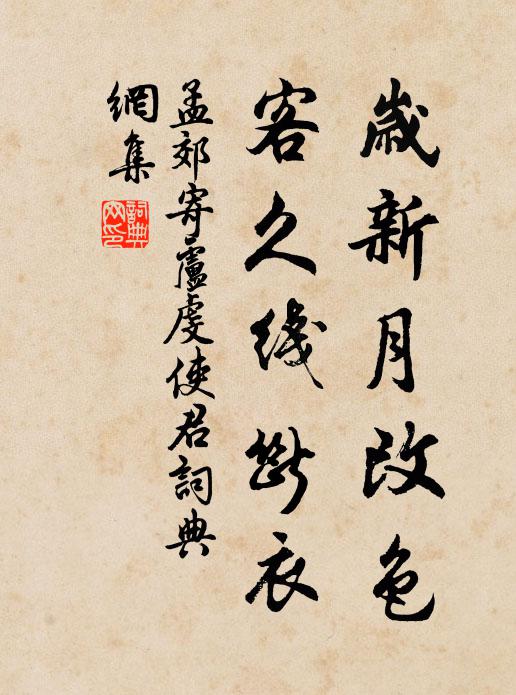 歲新月改色
客久綫斷衣
孟郊寄盧虔使君詞典
網集
詞典
网印